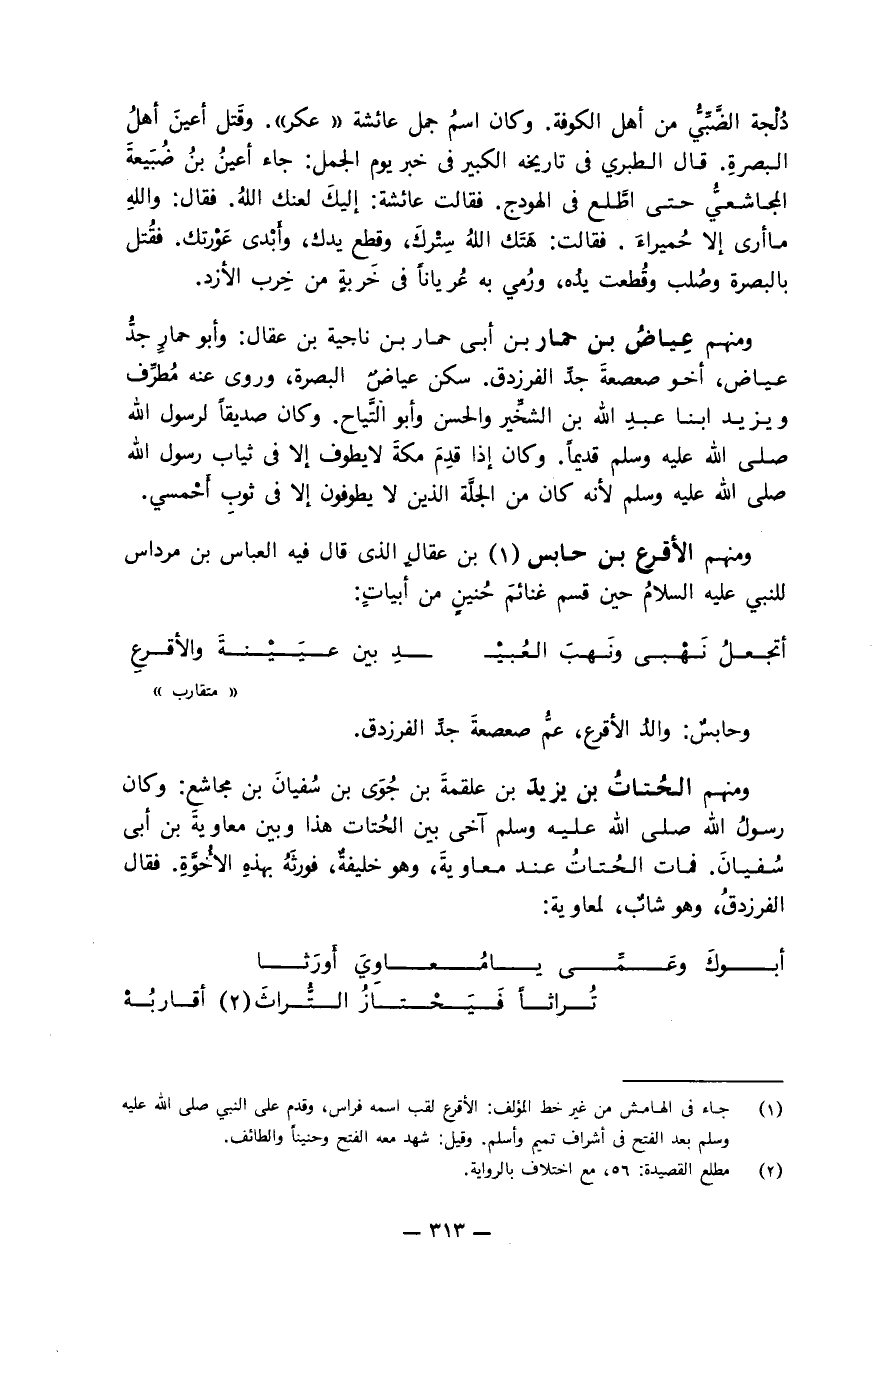 دُلْجة الضَّبِّيُّ من أهل الكوفة. وكان اسمُ جمل عائشة « عكر». وقَتل أعينَ أهلُ
البصرةِ. قال الطبري فى تاريخه الكبير فى خبر يوم الجمل: جاء أعينُ بنُ ضُبَيعةَ
المجاشعيُّ حتى اطَّلع فى الهودج. فقالت عائشة: إليكَ لعنك اللهُ. فقال: واللهِ
ماأرى إلا حُميراءَ . فقالت: هَتَك اللهُ سِتْركَ، وقطع يدك، وأَبْدى عَوْرتك. فقُتل
بالبصرة وصُلب وقُطعت يدُه، ورُمي به عُرياناً فى خَربةٍ من خِرب الأزد.
ومنهم عِياضُ بن حمار بن أبى حمار بن ناجية بن عقال: وأبو حمارٍ جدُّ
عياض، أخو صعصعةَ جدِّ الفرزدق. سكن عياضٌ البصرة، وروى عنه مُطرِّف
ويزيد ابنا عبدِ الله بن الشخِّير والحسن وأبو التَّياح. وكان صديقاً لرسول الله
صلى الله عليه وسلم قديماً. وكان إذا قدِمَ مكةَ لايطوف إلا فى ثياب رسول الله
صلى الله عليه وسلم لأنه كان من الجلَّة الذين لا يطوفون إلا فى ثوبِ أَحْمسي.
ومنهم الأقرع بن حابس (١) بن عقالٍ الذى قال فيه العباس بن مرداس
للنبي عليه السلامُ حين قسم غنائمَ حُنينٍ من أبياتٍ:
أتجعلُ نَهْبى ونَهبَ العُبيْـ ـدِ بين عيَيْنةَ والأقرعِ
« متقارب »
وحابسٌ: والدُ الأقرع، عمُّ صعصعةَ جدِّ الفرزدق.
ومنهم الحُتاتُ بن يزيد بن علقمةَ بن جُوَى بن سُفيانَ بن مجاشع: وكان
رسولُ الله صلى الله عليه وسلم آخى بين الحُتات هذا وبين معاويةَ بن أبى
سُفيانَ. فمات الحُتاتُ عند معاويةَ، وهو خليفةٌ، فورثَهُ بهذهِ الأُخوَّةِ. فقال
الفرزدقُ، وهو شابٌ، لمعاوية:
أبوكَ وعَمِّى يامُعاوِيَ أَورَثا
تُراثاً فَيَحْتازُ التُّراثَ (٢) أقاربُهْ
(١) جاء فى الهامش من غير خط المؤلف: الأقرع لقب اسمه فراس، وقدم على النبي صلى الله عليه
وسلم بعد الفتح فى أشراف تميم وأسلم. وقيل: شهد معه الفتح وحنيناً والطائف.
(٢) مطلع القصيدة: ٥٦، مع اختلاف بالرواية.
— ٣١٣ —